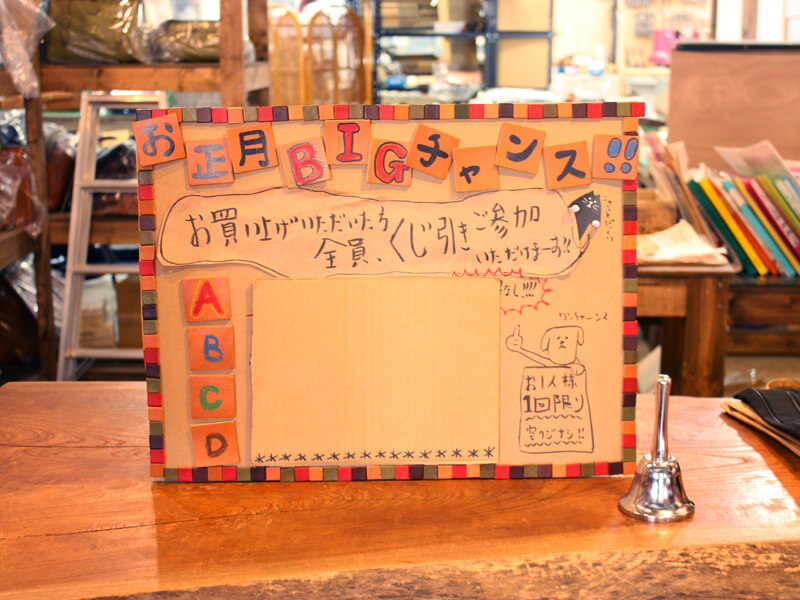 お正月BIGチャンス!!
お買い上げいただいたら
全員、くじ引きご参加
いただけまーす!!
なし!!!!
A
B
C
D
ワンチャーンス
お1人様
1回限り
空クジナシ!!